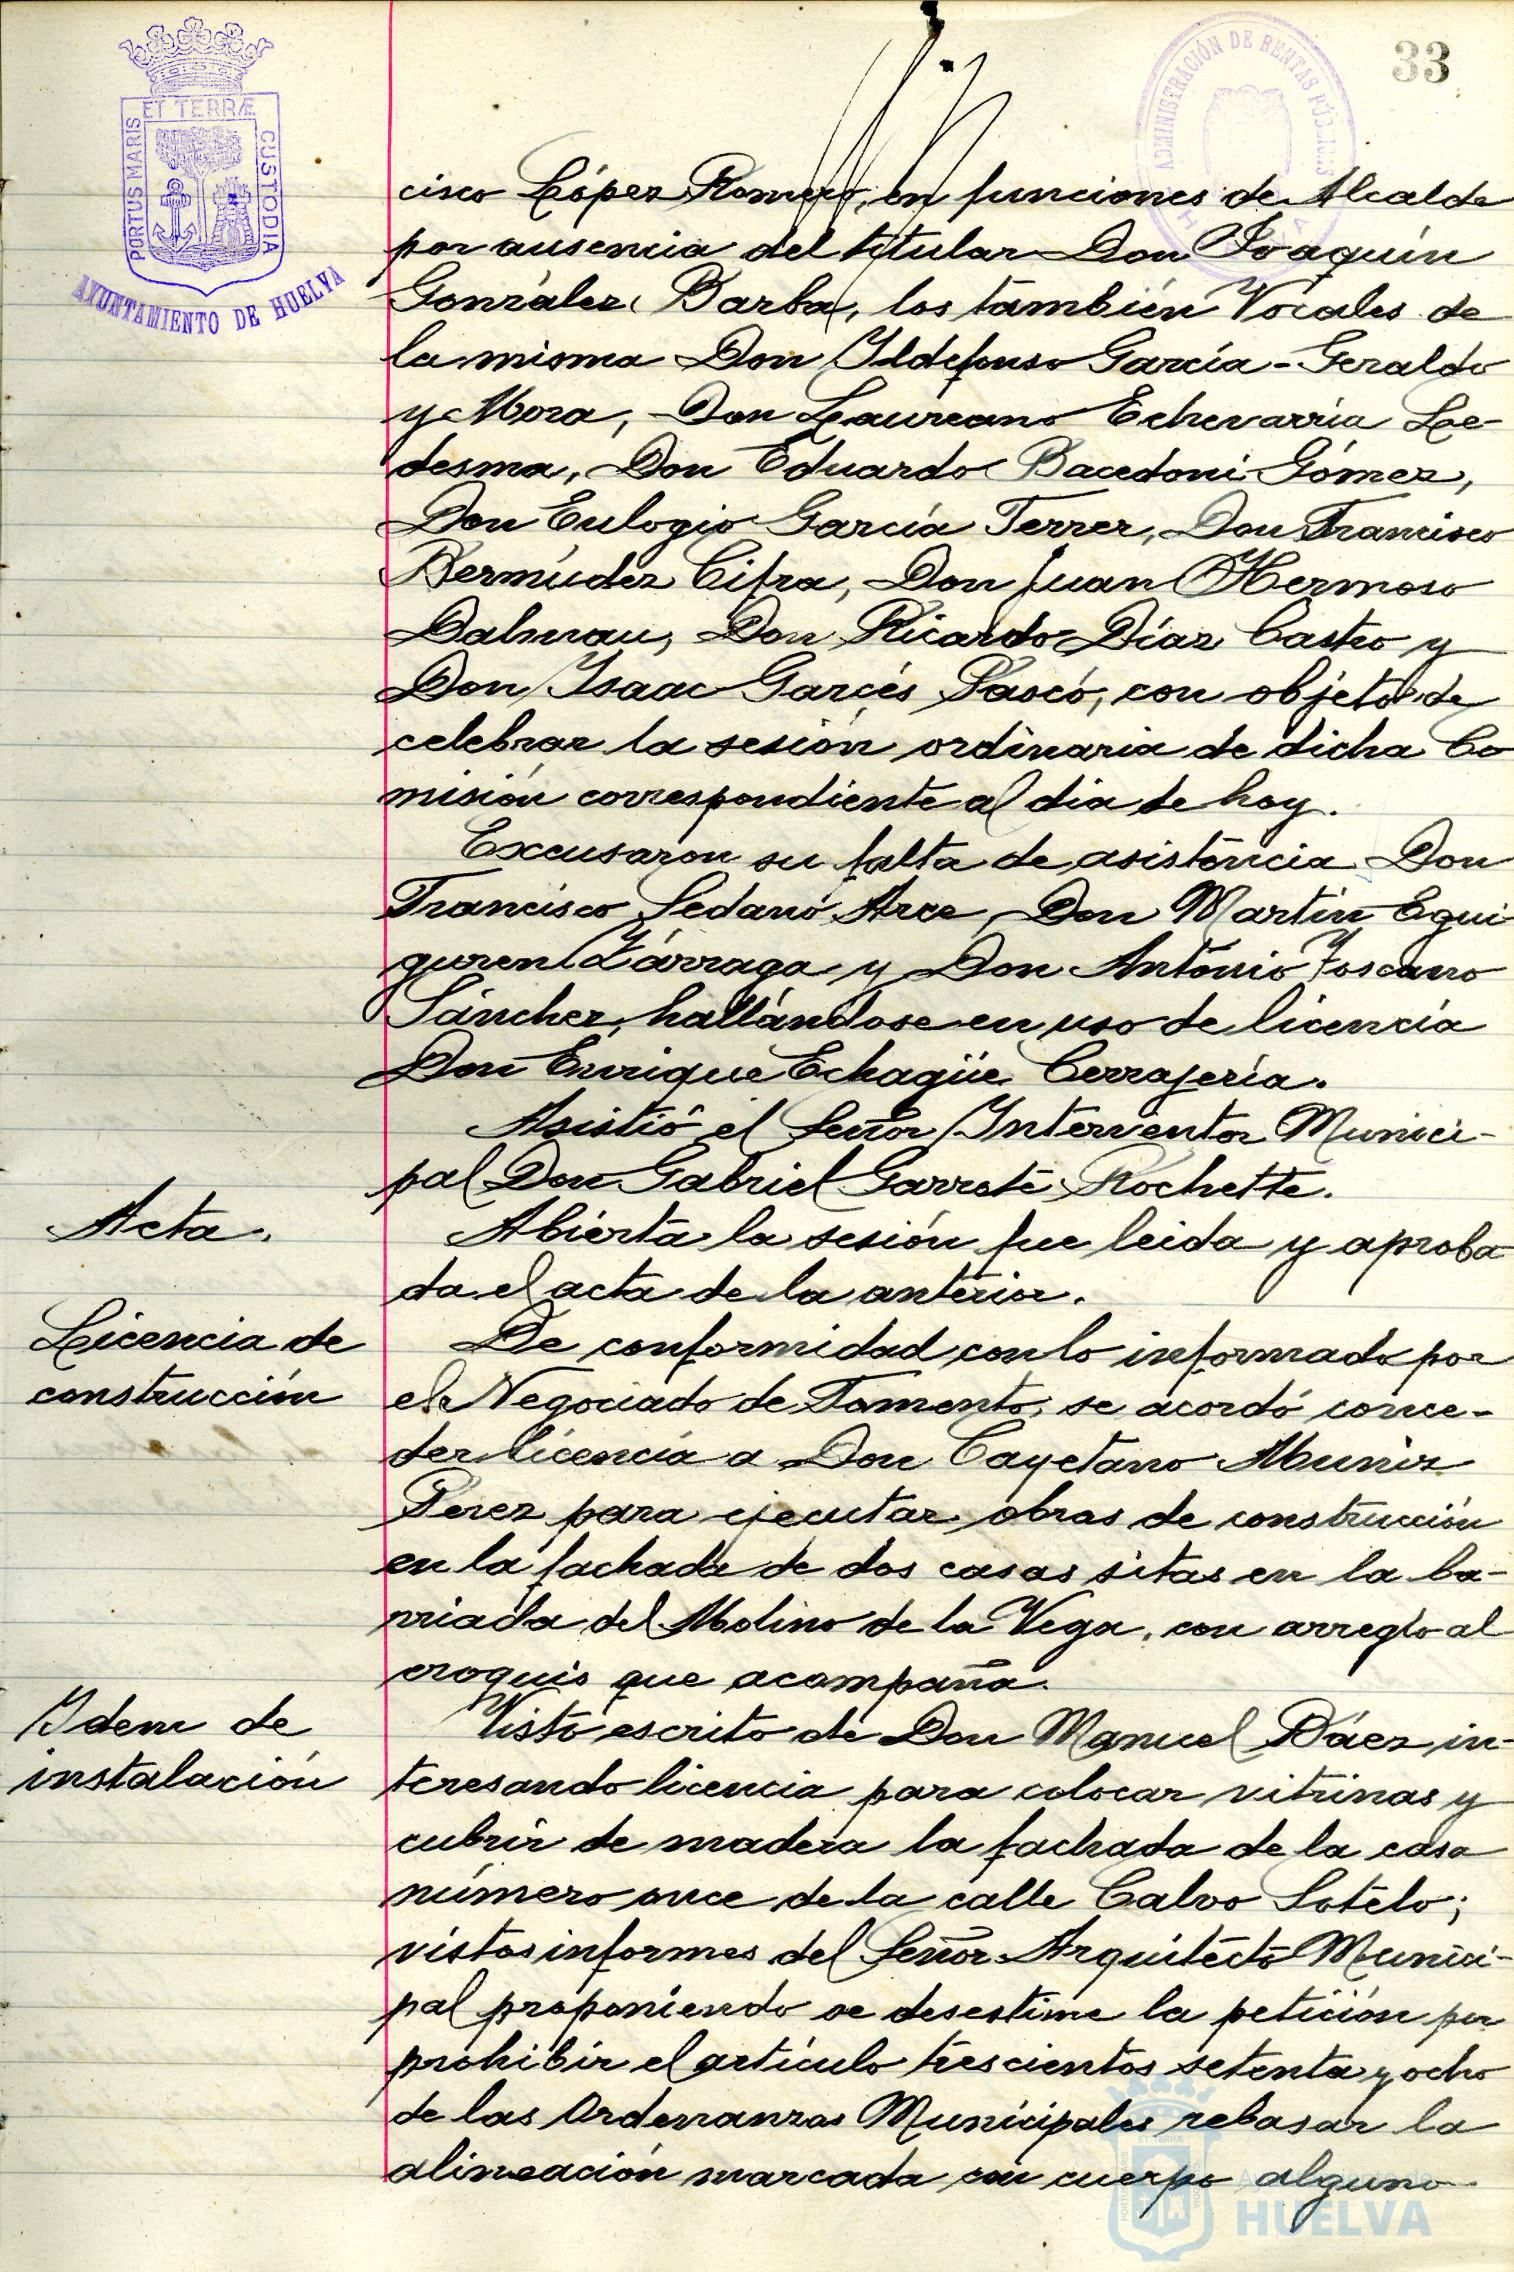 33
ET TERRÆ
PORTUS MARIS
CUSTODIA
AYUNTAMIENTO DE HUELVA
ADMINISTRACIÓN DE RENTAS PÚBLICAS
cisco López Romero, en funciones de Alcalde
por ausencia del titular Don Joaquín
González Barba, los también Vocales de
la misma Don Ildefonso García-Geraldo
y Mora, Don Laureano Echevarría Le-
desma, Don Eduardo Bacedoni Gómez,
Don Eulogio García Ferrer, Don Francisco
Bermúdez Cifra, Don Juan Hermoso
Dalmau, Don Ricardo Díaz Castro y
Don Isaac Garcés Pascó, con objeto de
celebrar la sesión ordinaria de dicha Co
misión correspondiente al dia de hoy.
Excusaron su falta de asistencia Don
Francisco Sedano Arce, Don Martín Egui
guren Zárraga y Don Antonio Toscano
Sánchez, hallándose en uso de licencia
Don Enrique Echagüe Cerrajería.
Asistió el Señor Interventor Munici-
pal Don Gabriel Garrote Rochette.
Acta.
Abierta la sesión fue leida y aproba
da el acta de la anterior.
Licencia de
construcción
De conformidad con lo informado por
el Negociado de Fomento, se acordó conce-
der licencia a Don Cayetano Muniz
Perez para ejecutar obras de construcción
en la fachada de dos casas sitas en la ba-
rriada del Molino de la Vega, con arreglo al
croquis que acompaña.
Idem de
instalación
Visto escrito de Don Manuel Báez in-
teresando licencia para colocar vitrinas y
cubrir de madera la fachada de la casa
número once de la calle Calvo Sotelo;
vistos informes del Señor Arquitecto Munici-
pal proponiendo se desestime la petición por
prohibir el artículo trescientos setenta y ocho
de las Ordenanzas Municipales rebasar la
alineación marcada con cuerpo alguno
HUELVA